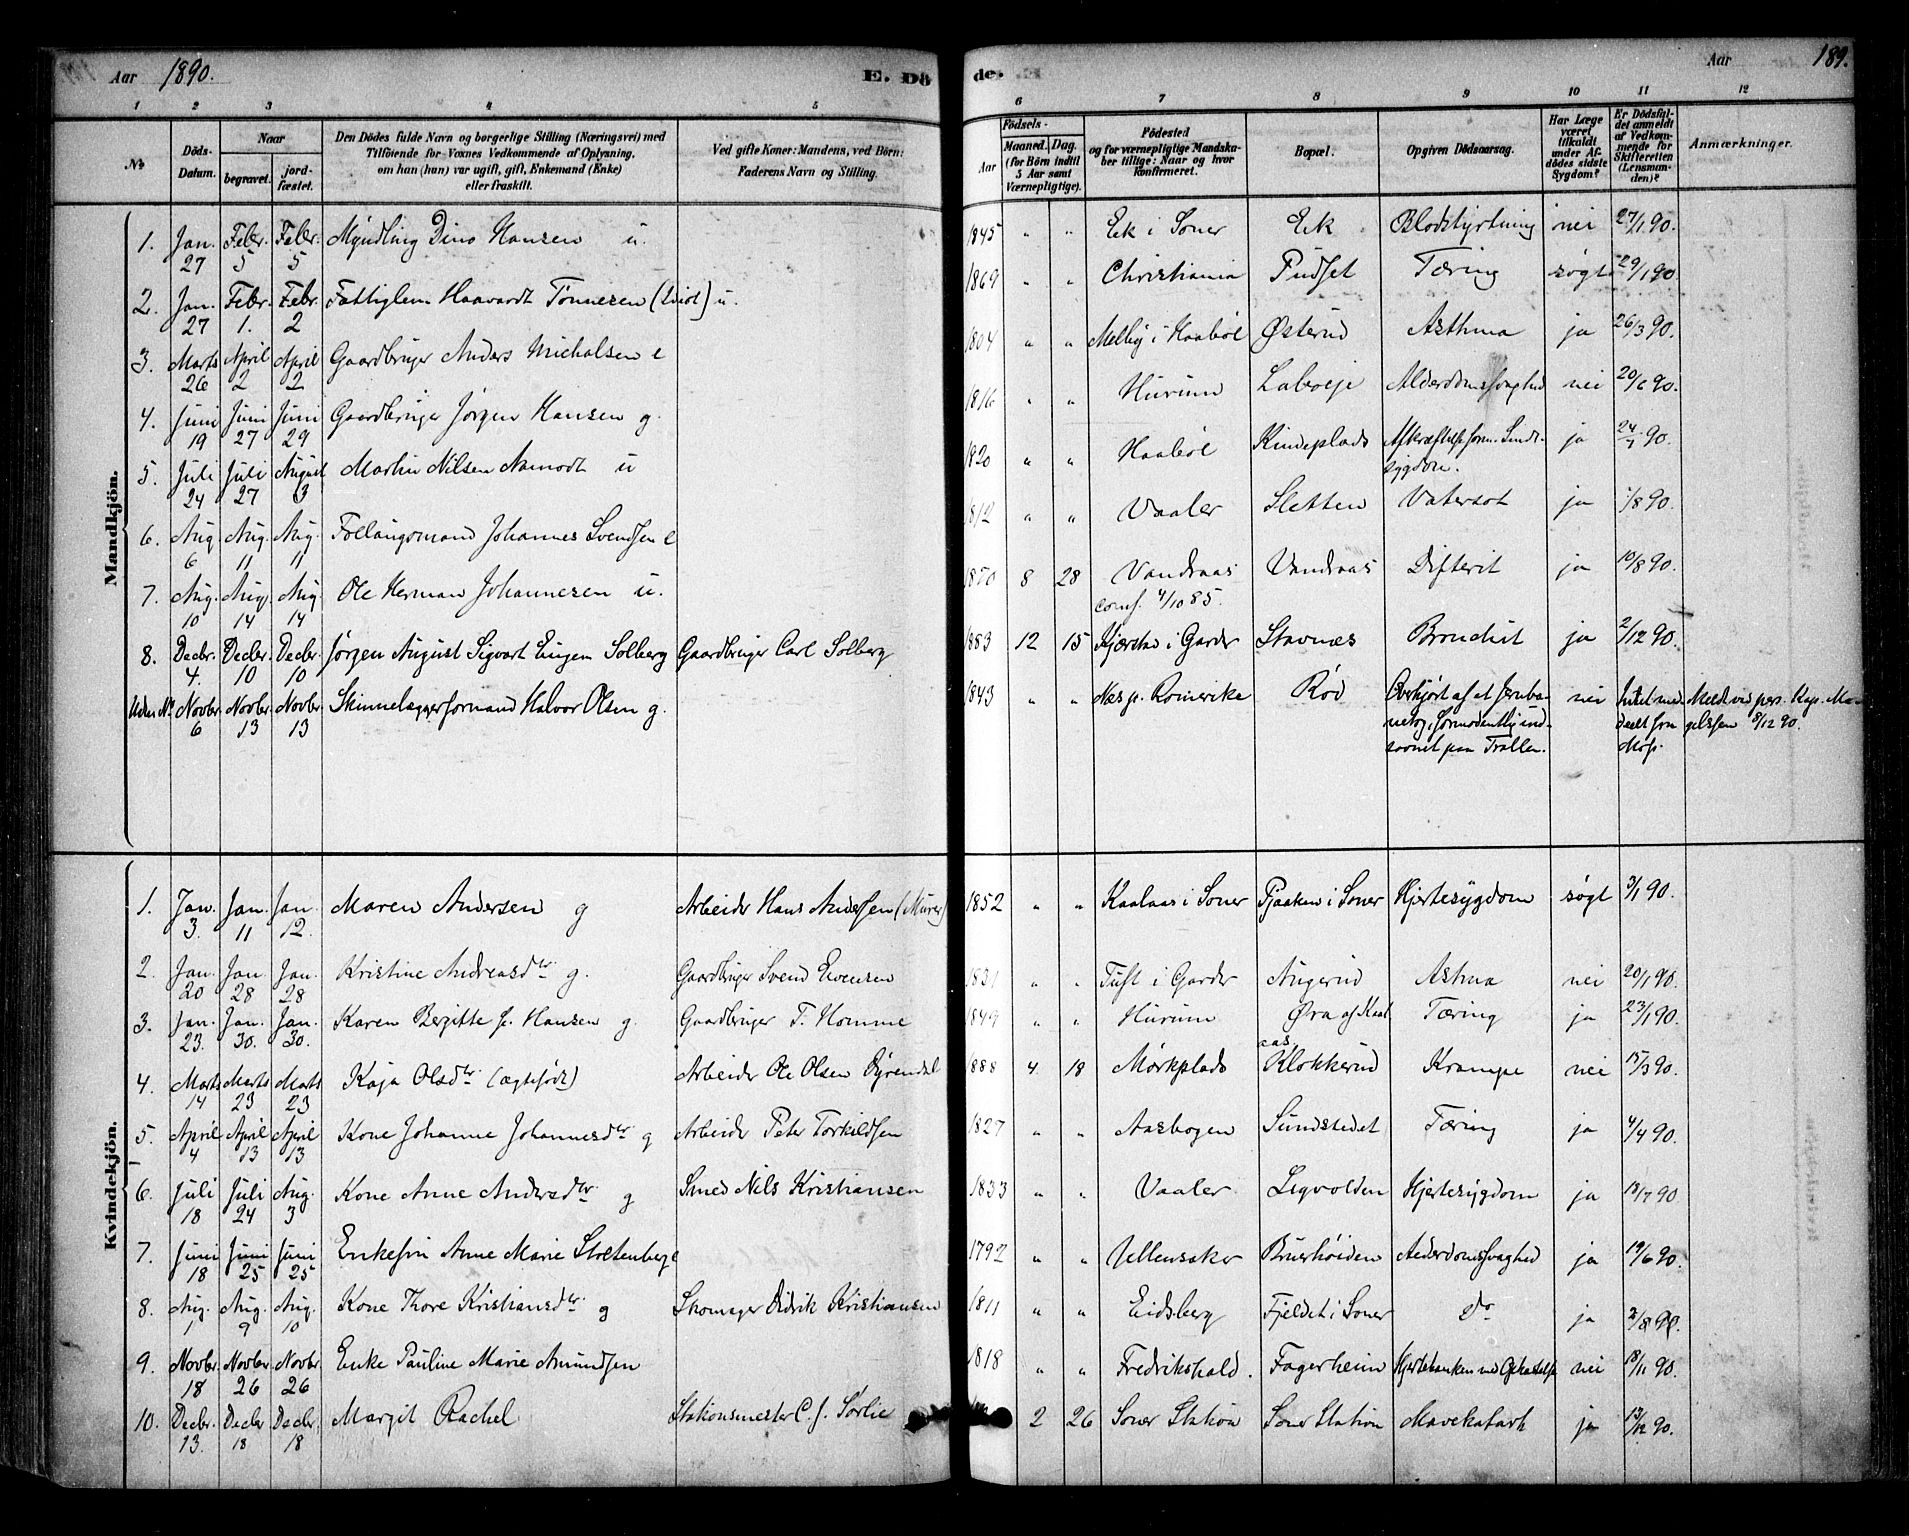 Aar 1890. E. Dö
de. Aar 189.
1 2 3 4 5
6 7 8 9 10 11 12
No
Döds-Datum.
Naar
begravet.
jordfæstet.
Den Dödes fulde Navn og borgerlige Stilling (Næringsvei) med
Tilföiende for Voxnes Vedkommende af Oplysning,
om han (hun) var ugift, gift, Enkemand (Enke)
eller fraskilt.
Ved gifte Koner: Mandens, ved Börn:
Faderens Navn og Stilling.
Födsels-
Aar
Maaned. Dag.
(for Börn indtil
5 Aar samt
Værnepligtige).
Födested
og for værnepligtige Mandskaber
tillige: Naar og hvor
konfirmeret.
Bopæl.
Opgiven Dödsaarsag.
Har Læge
været
tilkaldt
under Afdödes
sidste
Sygdom?
Er Dödsfaldet
anmeldt
af Vedkommende
for
Skifteretten
(Lensmanden)?
Anmærkninger.
Mandkjön.
1. Jan. 27 Febr. 5 Febr. 5 Myndling Dino Hansen u. 1845 " " Ek i Soner Ek Blodstyrtning nei 27/1 90.
2. Jan. 27 Febr. 1. Febr. 2 Fattiglem Haavardt Tönnesen (Idiot) u. 1869 " " Christiania Pudset Tæring søgt 29/1 90
3. Marts 26 April 2 April 2 Gaardbruger Anders Michalsen e 1804 " " Melby i Haaböl Østerud Asthma ja 26/3 90.
4. Juni 19 Juni 27 Juni 29 Gaardbruger Jörgen Hansen g. 1816 " " Hurum Labveje Alderdomssvaghed nei 20/6 90.
5. Juli 24 Juli 27 August 3 Martin Nilsen Aamodt u 1820 " " Haaböl Kindeplads Afkræftelse form. Sindssygdom. ja 24/7 90.
6. Aug 6 Aug. 11 Aug. 11 Føllaugsmand Johannes Svendsen e 1812 " " Vaaler Sletten Vatersot ja 1/8 90.
7. Aug. 10 Aug. 14 Aug. 14 Ole Herman Johannesen u. 1870 8 28 Vandraas conf. 4/10 85. Vandraas Difterit ja 10/8 90.
8. Decbr. 4. Decbr. 10 Decbr. 10 Jørgen August Sigvart Eugen Solberg Gaardbruger Carl Solberg 1883 12 15 Kjærstad i Garder Stavnæs Bronchit ja 2/12 90.
Uden No Novbr. 6 Novbr. 13 Novbr. 13 Skinnelæggerformand Halvor Olsen g. 1843 " " Næs p. Romerike Röd Overkjørt af et Jernbanetog, formodentlig indsovnet paa Trallen. nei Intet meddeelt fra Mos. Meldt ved pers. Kap. Magelssen 8/12 90.
Kvindekjön.
1. Jan. 3. Jan. 11 Jan. 12. Maren Andersen g Arbeider Hans Andersen (Murer) 1852 " " Kaalaas i Soner Pjaaken i Soner Hjertesygdom søgt 3/1 90.
2. Jan. 20 Jan. 28 Jan. 28 Kristine Andreasdtr g. Gaardbruger Svend Evensen 1831 " " Tuft i Garder Augerud Asthma nei 20/1 90.
3. Jan. 23. Jan. 30. Jan. 30. Karen Bergitte f. Hansen g. Gaardbruger T. Homme 1849 " " Hurum Øra af Kaalaas Tæring ja 23/1 90.
4. Marts 14 Marts 23 Marts 23 Kaja Olsdtr (ægtefödt) Arbeider Ole Olsen Dyrendal 1888 4 18 Mörkplads Klokkerud Krampe nei 15/3 90.
5. April 4 April 13 April 13 Kone Johanne Johannesdtr g Arbeider Peter Torkildsen 1827 " " Aasbogen Sundstedet Tæring ja 4/4 90.
6. Juli 18 Juli 24 Aug. 3 Kone Anne Andersdtr. g Smed Nils Kristiansen 1833 " " Vaaler Legvolden Hjertesygdom ja 18/7 90
7. Juni 18 Juni 25 Juni 25 Enkefru Anne Marie Stoltenberg e 1792 " " Ullensaker Bruerhöiden Alderdomssvaghed ja 19/6 90.
8. Aug. 1 Aug. 9 Aug. 10 Kone Thore Kristiansdtr g Skomager Didrik Kristiansen 1811 " " Eidsberg Fjeldet i Soner do ja 2/8 90.
9. Novbr. 18 Novbr. 26 Novbr. 26 Enke Pauline Marie Amundsen 1818 " " Fredrikshald. Fagerheim Hjertebanken med Opkastelse nei 18/11 90.
10. Decbr. 13. Decbr 18 Decbr. 18 Margit Rachel Stationsmester C. J. Sørlie 2 26 Soner Station Soner Station Mavekatarh ja 13/12 90.